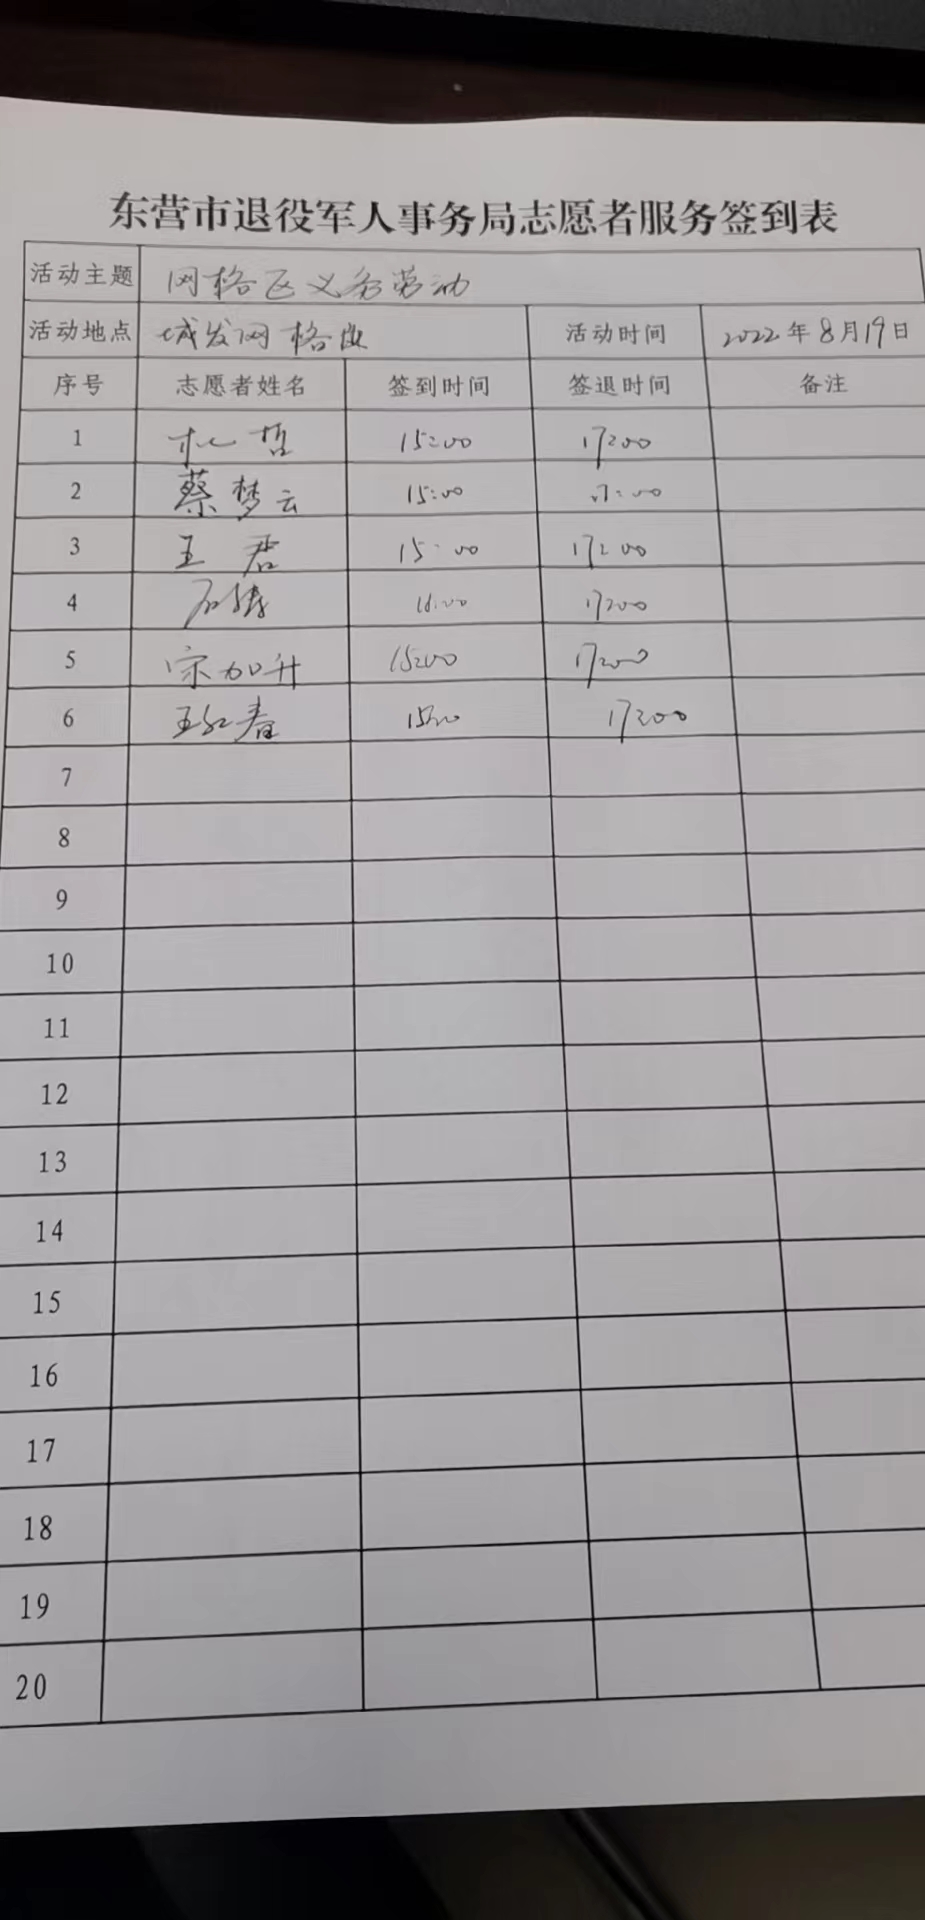 东营市退役军人事务局志愿者服务签到表
活动主题 网格区义务劳动
活动地点 城发网格区 活动时间 2022年8月19日
序号 志愿者姓名 签到时间 签退时间 备注
1 杜哲 15:00 17:00
2 蔡梦云 15:00 17:00
3 王君 15:00 17:00
4 17:00
5 宗加升 15:00 17:00
6 王红春 15:00 17:00
7
8
9
10
11
12
13
14
15
16
17
18
19
20